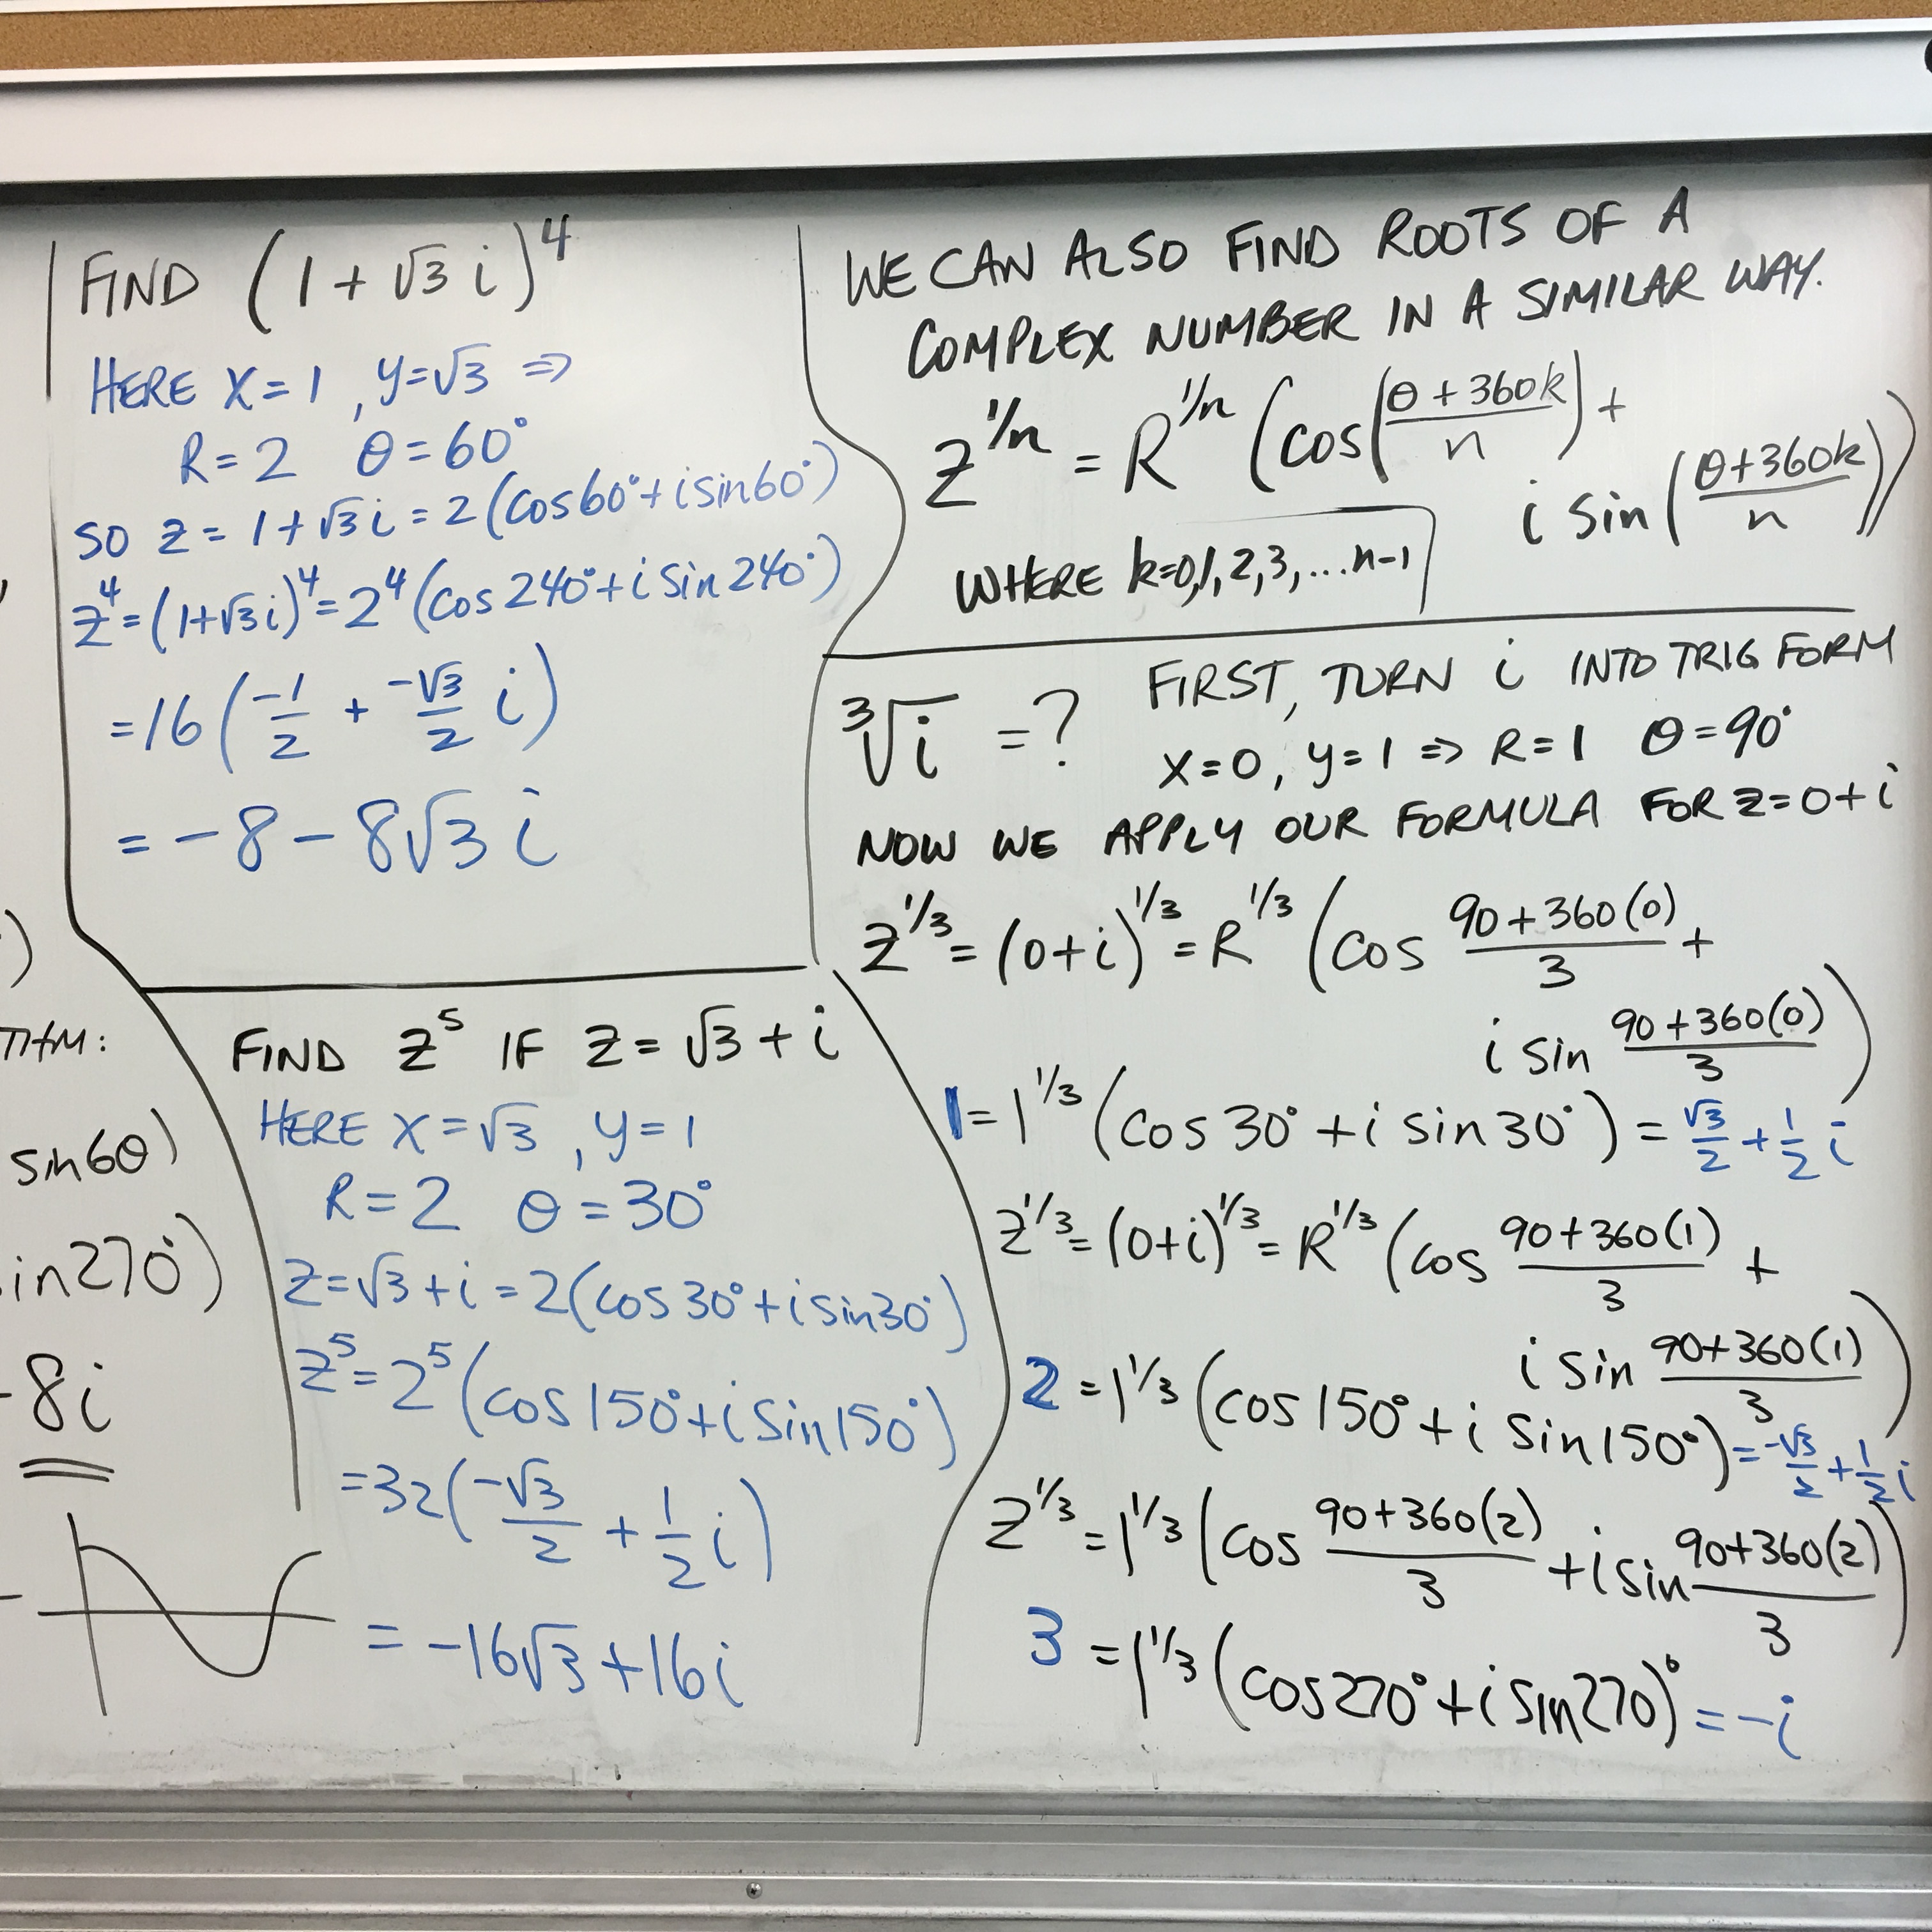 FIND (1+√3 i)^4
HERE X=1, y=√3 ⇒
R=2 θ=60°
SO z = 1+√3 i = 2(cos60°+isin60°)
z^4=(1+√3i)^4=2^4(cos240°+isin240°)
=16(-1/2 + -√3/2 i)
= -8-8√3 i
THM:
sin6θ)
in270°)
-8i
FIND z^5 IF z=√3+i
HERE X=√3, y=1
R=2 θ=30°
z=√3+i=2(cos30°+isin30°)
z^5=2^5(cos150°+isin150°)
=32(-√3/2 + 1/2 i)
= -16√3+16i
WE CAN ALSO FIND ROOTS OF A
COMPLEX NUMBER IN A SIMILAR WAY.
z^1/n = R^1/n (cos(θ+360k/n)+
i sin(θ+360k/n))
WHERE k=0,1,2,3,...n-1
∛i =? FIRST, TURN i INTO TRIG FORM
X=0, y=1 ⇒ R=1 θ=90°
NOW WE APPLY OUR FORMULA FOR z=0+i
z^1/3=(0+i)^1/3=R^1/3(cos 90+360(0)/3 +
i sin 90+360(0)/3)
1 =1^1/3(cos30°+i sin30°)=√3/2+1/2 i
z^1/3=(0+i)^1/3=R^1/3(cos 90+360(1)/3 +
i sin 90+360(1)/3)
2 =1^1/3(cos150°+i sin150°)=-√3/2+1/2 i
z^1/3=1^1/3(cos 90+360(2)/3 +isin 90+360(2)/3)
3 =1^1/3(cos270°+isin270)°=-i